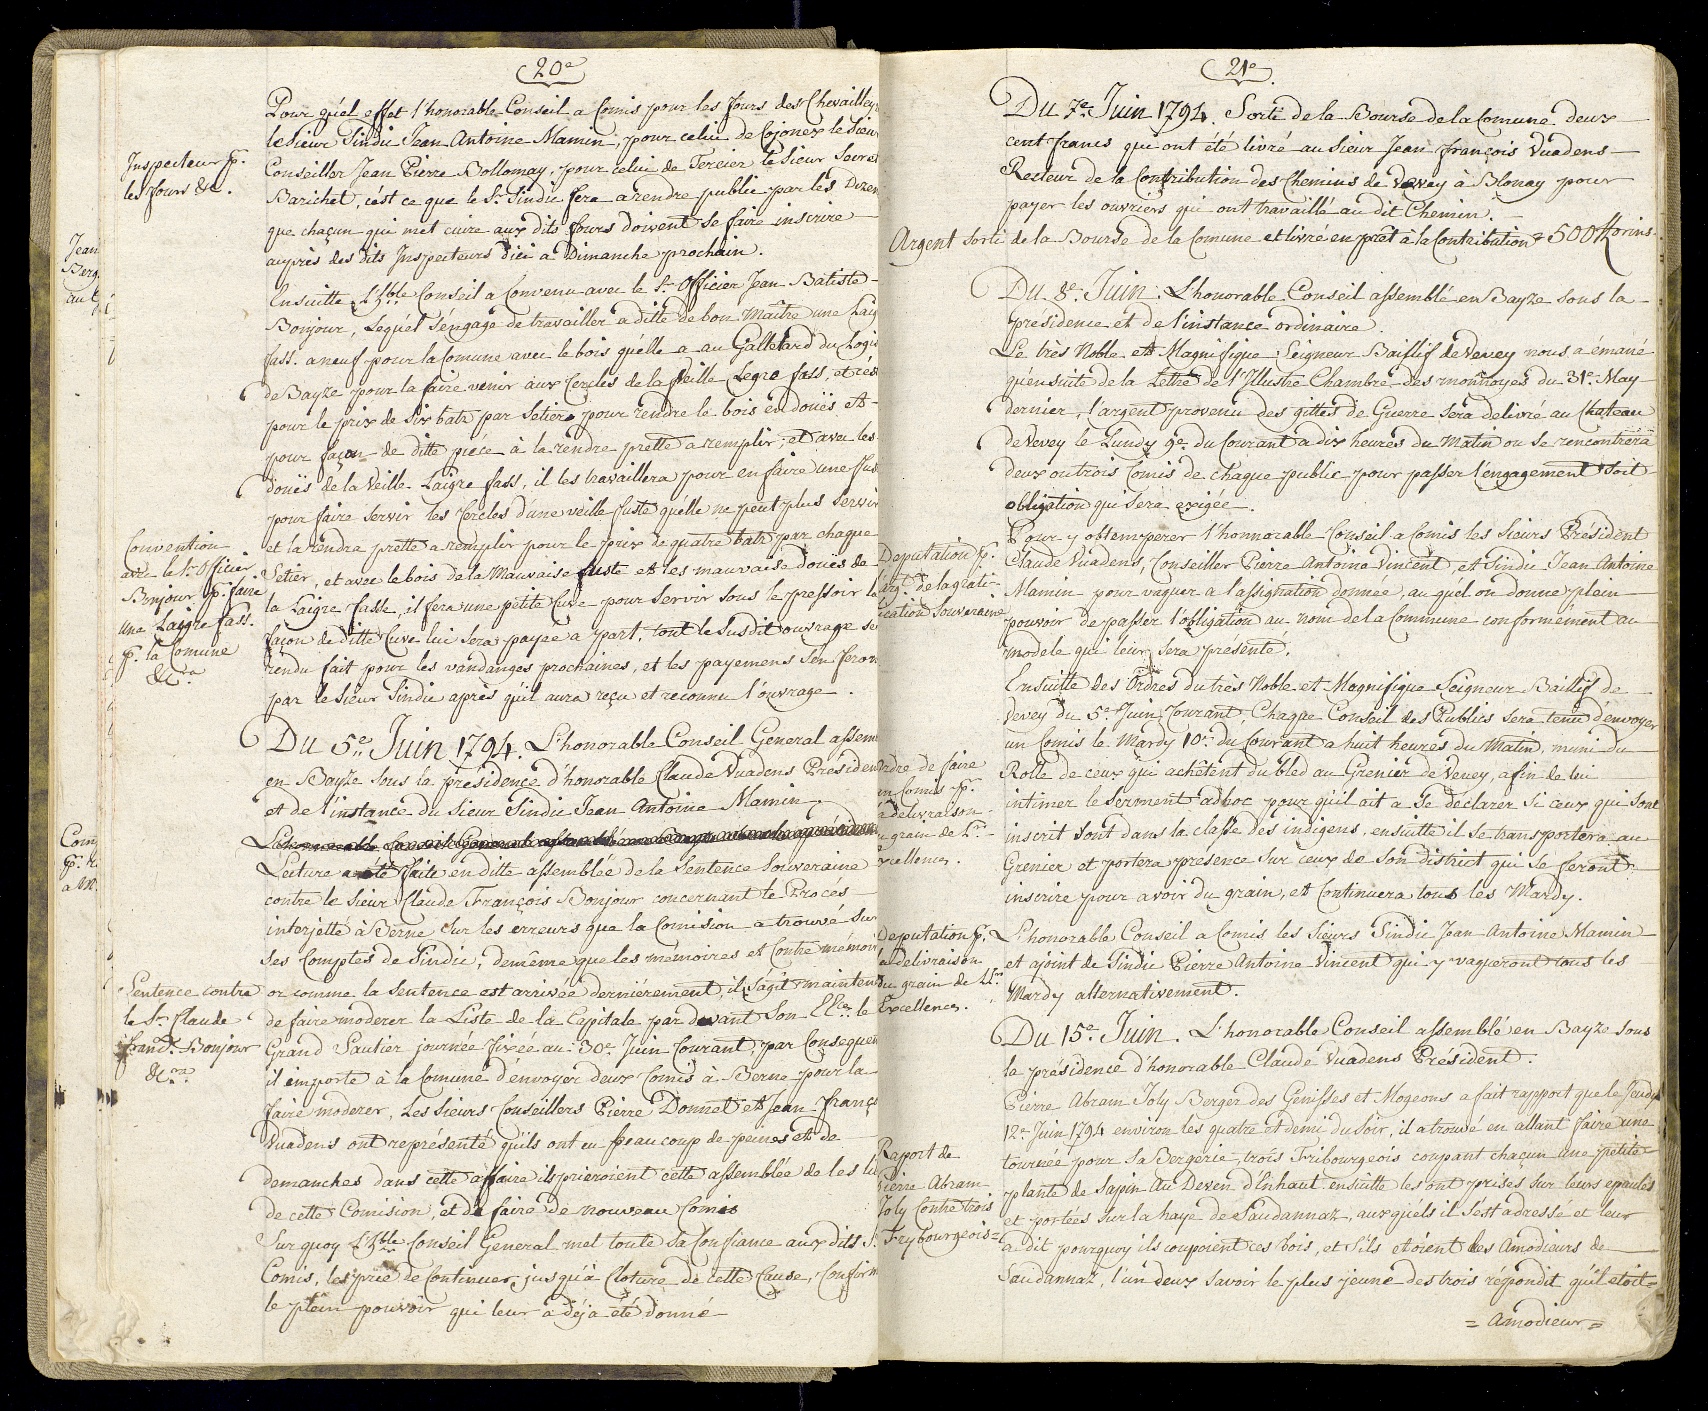 20e
Pour quél effet l'honorable Conseil a Comis pour les fours des Chevalley
le Sieur Sindic Jean Antoine Mamin, pour celui de Cojonex le Sieur
Inspecteur pr.
les fours &c.
Conseiller Jean Pierre Bollomay, pour celui de Tercier le Sieur
Barichet, c'ést ce que le Sr. Sindic fera a rendre public par les Dizen
que chaçun qui met cuire aux dits fours doivent se faire inscrire
auprès des dits Inspecteurs d'ici a Dimanche prochain.
Jean
Berg.
au
Ensuitte L'hble Conseil a Convenu avec le Sr. Officier Jean Batiste
Bonjour, Lequél s'éngage de travailler a ditte de bon Maître une Laig
fass. a neuf pour la Comune avec le bois quélle a au Galletard du Logis
de Bayze pour la faire venir aux Cercles de la Veille Legre fass, et
pour le prix de Six batz par Setier pour rendre le bois en douës et
pour façon de ditte piéce à la rendre prette a remplir; et avec les
douës de la Veille Laigre fass, il les travaillera pour en faire une fus
pour faire servir les Cercles d'une veille fuste quélle ne peut plus servir
et la rendra prette a remplir pour le prix de quatre batz par chaque
Convention
avec le Sr. Officier
Bonjour pr. faire
une Laigre fass.
pr. la Comune
&cra
Setier, et avec le bois de la Mauvaise fuste et les mauvaise douës de
la Laigre fasse, il fera une petite Cuve pour servir sous le pressoir la
façon de ditte Cuve lui sera payée a part, tout le susdit ouvrage se
rendu fait pour les vandanges prochaines, et les payemens s'en feron
par le Sieur Sindic après quil aura reçu et reconnu l'ouvrage.
Du 5e. Juin 1794. L'honorable Conseil General assem
en Bayze sous la présidence d'honorable Claude Vuadens Presiden
et de l'instance du Sieur Sindic Jean Antoine Mamin.
Com
pr.
a
Lecture a été faite en ditte assemblée de la Sentence Souveraine
contre le Sieur Claude François Bonjour concernant le Procès
interjetté à Berne Sur les erreurs que la Comision a trouvé Sur
Ses Comptes de Sindic, demême que les mémoires et Contre mémoir
Sentence contre
le Sr. Claude
franç. Bonjour
&cra.
or comme la Sentence est arrivée derniérement, il s'agit mainten
de faire moderer la Liste de la Capitale par devant Son EEce. le
Grand Sautier journée fixée au 30e. Juin Courant, par Consequen
il importe à la Comune d'envoyer deux Comis à Berne pour la
faire moderer, Les Sieurs Conseillers Pierre Donnet et Jean franço
Vuadens ont représenté quils ont eu beaucoup de peines et de
demanches dans cette affaire ils prieroient cette assemblée de les li
de cette Comision, et de faire de nouveau Comis
Sur quoy L'hble Conseil General met toute sa Confiance aux dits S.
Comis, les prie de Continuer, jusqu'à Cloture de cette Cause, Confirm
le plein pouvoir qui leur a déja été donné
21e.
Du 7e. Juin 1794. Sorti de la Bourse de la Comune deux
cent francs qui ont été livré au Sieur Jean françois Vuadens
Recteur de la Contribution des Chemins de Vevey à Blonay pour
payer les ouvriers qui ont travaillé au dit Chemin.
Argent sorti de la Bourse de la Comune et livré en prêt à la Contribution 500 florins.
Du 8e. Juin. L'honorable Conseil assemblé en Bayze sous la
présidence et de l'instance ordinaire.
Le très Noble et Magnifique Seigneur Baillif de Vevey nous a émané
quénsuite de la Lettre de l'Illustre Chambre des monnoyes du 31e. May
dernier, l'argent provenu des gittes de Guerre sera delivré au Chateau
de Vevey le Lundy 9e. du Courant a dix heures du Matin ou se rencontrera
deux ou trois Comis de chaque public pour passer l'engagement soit
obligation qui sera exigée.
Deputation pr.
l'arg. de la grati-
fication Souveraine
Pour y obtemperer l'honnorable Conseil a Comis les Sieurs Président
Claude Vuadens, Conseiller Pierre Antoine Vincent, et Sindic Jean Antoine
Mamin pour vaquer a l'assignation donnée, au quél on donne plein
pouvoir de passer l'obligation au nom de la Commune conformément au
modele qui leur sera présenté.
Ensuitte des Ordres du très Noble et Magnifique Seigneur Baillif de
Vevey du 5e Juin Courant, Chaque Conseil des Publics sera tenu d'envoyer
un Comis le Mardy 10e. du Courant a huit heures du Matin, muni du
Ordre de faire
un Comis pr.
la delivraison
du grain de L.
Excellences.
Rolle de ceux qui achêtent du bled au Grenier de Vevey, afin de lui
intimer le Serment adhoc pour quil ait a Se déclarer Si ceux qui sont
inscrit sont dans la classe des indigens, ensuitte il se transportera au
Grenier et portera presence Sur ceux de Son district qui se feront
inscrire pour avoir du grain, et Continuera tous les Mardy.
Deputation pr.
la delivraison
du grain de LL.
Excellences.
L'honorable Conseil a Comis les Sieurs Sindic Jean Antoine Mamin
et ajoint de Sindic Pierre Antoine Vincent qui y vaqueront tous les
Mardy alternativement.
Du 15e. Juin. L'honorable Conseil assemblé en Bayze Sous
la présidence d'honorable Claude Vuadens Président.
Pierre Abram Joly Berger des Genisses et Mogeons a fait rapport que le Jeudy
12e Juin 1794 environ les quatre et demi du Soir, il a trouvé en allant faire une
Raport de
Pierre Abram
Joly contre trois
Frybourgeois
tournée pour Sa Bergerie, trois Fribourgeois coupant chacun une petite
plante de Sapin Au Deven d'Enhaut ensuitte les ont prises sur leurs epaules
et portées Sur la haye de Saudannaz, auxquéls il S'ést adressé et leur
a dit pourquoy ils coupoient ces bois, et s'ils étoient les Amodieurs de
Saudannaz, l'un deux Savoir le plus jeune des trois répondit quil etoit
= Amodieur =